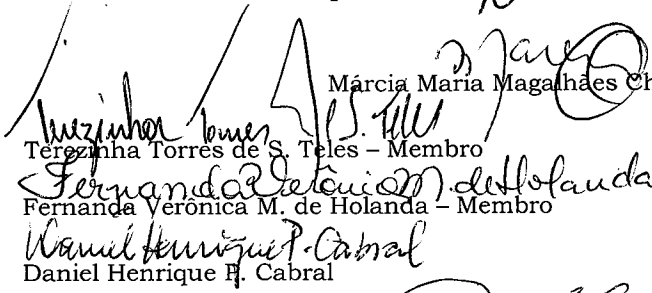 Márcia Maria Magalhães Ch
Terezinha Torres de S. Teles
Terezinha Torres de S. Teles – Membro
Fernanda Verônica M. de Holanda
Fernanda Verônica M. de Holanda – Membro
Daniel Henrique P. Cabral
Daniel Henrique P. Cabral